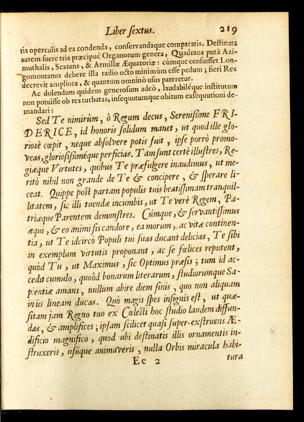 Liber sextus. 219
tis operculis ad ea condenda, conservandaque comparatis. Destinata
autem fuere tria præcipuè Organorum genera, Quadrans putà Azi-
muthalis, Sextans, & Armillæ Æquatoriæ: cúmque censuisset Lon-
gomontanus debere illa radio octo minimùm esse pedum; fieri Rex
decrevit ampliora, & quantum omninò usus pateretur.
Ac delendum quidem generosum adeò, laudabiléque institutum
non potuisse ob res turbatas, insequutúmque obitum exsequutioni de-
mandari:
Sed Te nimirùm, ô Regum decus, Serenissime FRI-
DERICE, id honoris solidum manet, ut quod ille glo-
riosè cœpit, neque absolvere potis fuit, ipse porrò promo-
veas, gloriosissiméque perficias. Tam sunt certè illustres, Re-
giæque Virtutes, quibus Te præfulgere inaudimus, ut me-
ritò nihil non grande de Te & concipere, & sperare li-
ceat. Quippe post partam populis tuis beatissimam tranquil-
litatem, sic illi tuendæ incumbis, ut Te verè Regem, Pa-
triæque Parentem demonstres. Cúmque, & servantissimus
æqui, & eo animi sis candore, ea morum, ac vitæ continen-
tia, ut Te idcircò Populi tui suas ducant delicias, Te sibi
in exemplum virtutis proponant, ac se felices reputent,
quòd Tu, ut Maximus, sic Optimus præsis; tum id ac-
cedit cumulo, quòd bonarum literarum, studiorumque Sa-
pientiæ amans, nullum abire diem sinis, quo non aliquam
in iis lineam ducas. Quò magis spes insignis est, ut quæ-
sitam jam Regno tuo ex Cælesti hoc studio laudem diffun-
das, & amplifices; ipsam scilicet quasi super-exstruens Æ-
dificio magnifico, quod ubi destinatis illis ornamentis in-
struxeris, usúque animaveris, nulla Orbis miracula habi-
Ee 2 tura